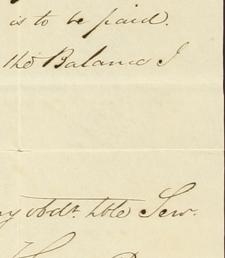 is to be paid.
the Balance I
obdt. hble Serv.